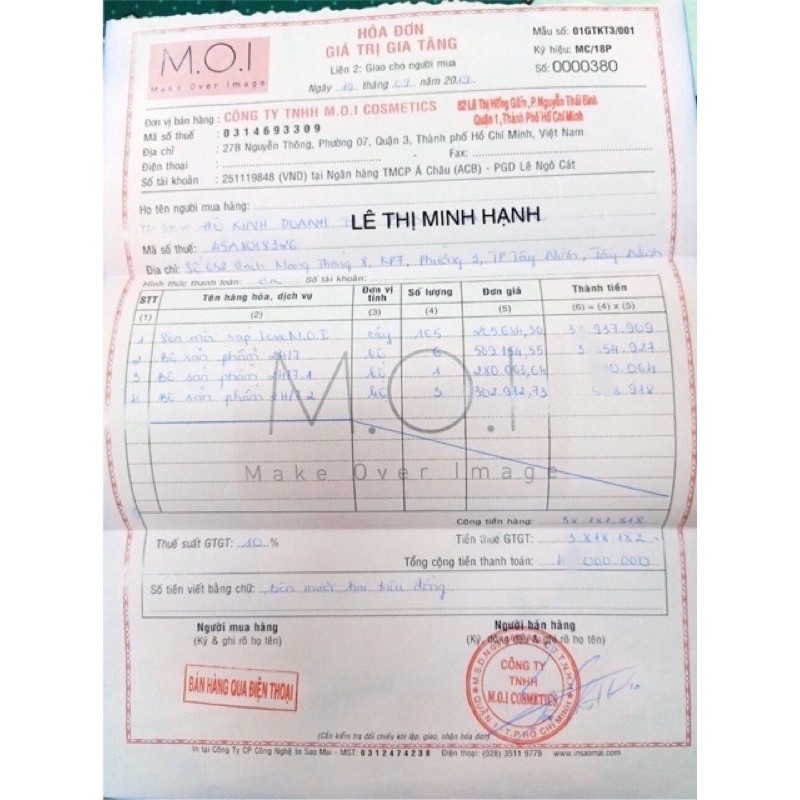 M.O.I
Make Over Image
HÓA ĐƠN
GIÁ TRỊ GIA TĂNG
Liên 2: Giao cho người mua
Ngày tháng năm 20
Mẫu số: 01GTKT3/001
Ký hiệu: MC/18P
Số: 0000380
Đơn vị bán hàng : CÔNG TY TNHH M.O.I COSMETICS
82 Lê Thị Hồng Gấm, P. Nguyễn Thái Bình
Quận 1, Thành Phố Hồ Chí Minh
Mã số thuế : 0314693309
Địa chỉ : 27B Nguyễn Thông, Phường 07, Quận 3, Thành phố Hồ Chí Minh, Việt Nam
Điện thoại : - Fax:
Số tài khoản : 251119848 (VND) tại Ngân hàng TMCP Á Châu (ACB) - PGD Lê Ngô Cát
Họ tên người mua hàng:
HỘ KINH DOANH LÊ THỊ MINH HẠNH
Mã số thuế:
Địa chỉ: Số Cách Mạng Tháng 8, KP7, Phường 3, TP Tây Ninh, Tây Ninh
Hình thức thanh toán: Số tài khoản:
STT Tên hàng hóa, dịch vụ Đơn vị tính Số lượng Đơn giá Thành tiền
(1) (2) (3) (4) (5) (6) = (4) x (5)
1 Son mũi sáp Love M.O.I cây 105
2 Bộ sản phẩm 24/7 bộ 6 509
3 Bộ sản phẩm 24/7.1 bộ 1 280.063,64
4 Bộ sản phẩm 24/7.2 bộ 3 302.972,73
M.O.I
Make Over Image
Cộng tiền hàng: 38.181.818
Thuế suất GTGT: 10 % Tiền thuế GTGT: 3.818.182
Tổng cộng tiền thanh toán: 000.000
Số tiền viết bằng chữ: Bốn mươi hai triệu đồng
Người mua hàng
(Ký & ghi rõ họ tên)
Người bán hàng
(Ký, đóng dấu & ghi rõ họ tên)
BÁN HÀNG QUA ĐIỆN THOẠI
CÔNG TY
TNHH
M.O.I COSMETICS
QUẬN 1 - T.P HỒ CHÍ MINH
(Cần kiểm tra đối chiếu khi lập, giao, nhận hóa đơn)
In tại Công Ty CP Công Nghệ In Sao Mai - MST: 0312474238 Điện thoại: (028) 3511 9779 www.insaomai.com